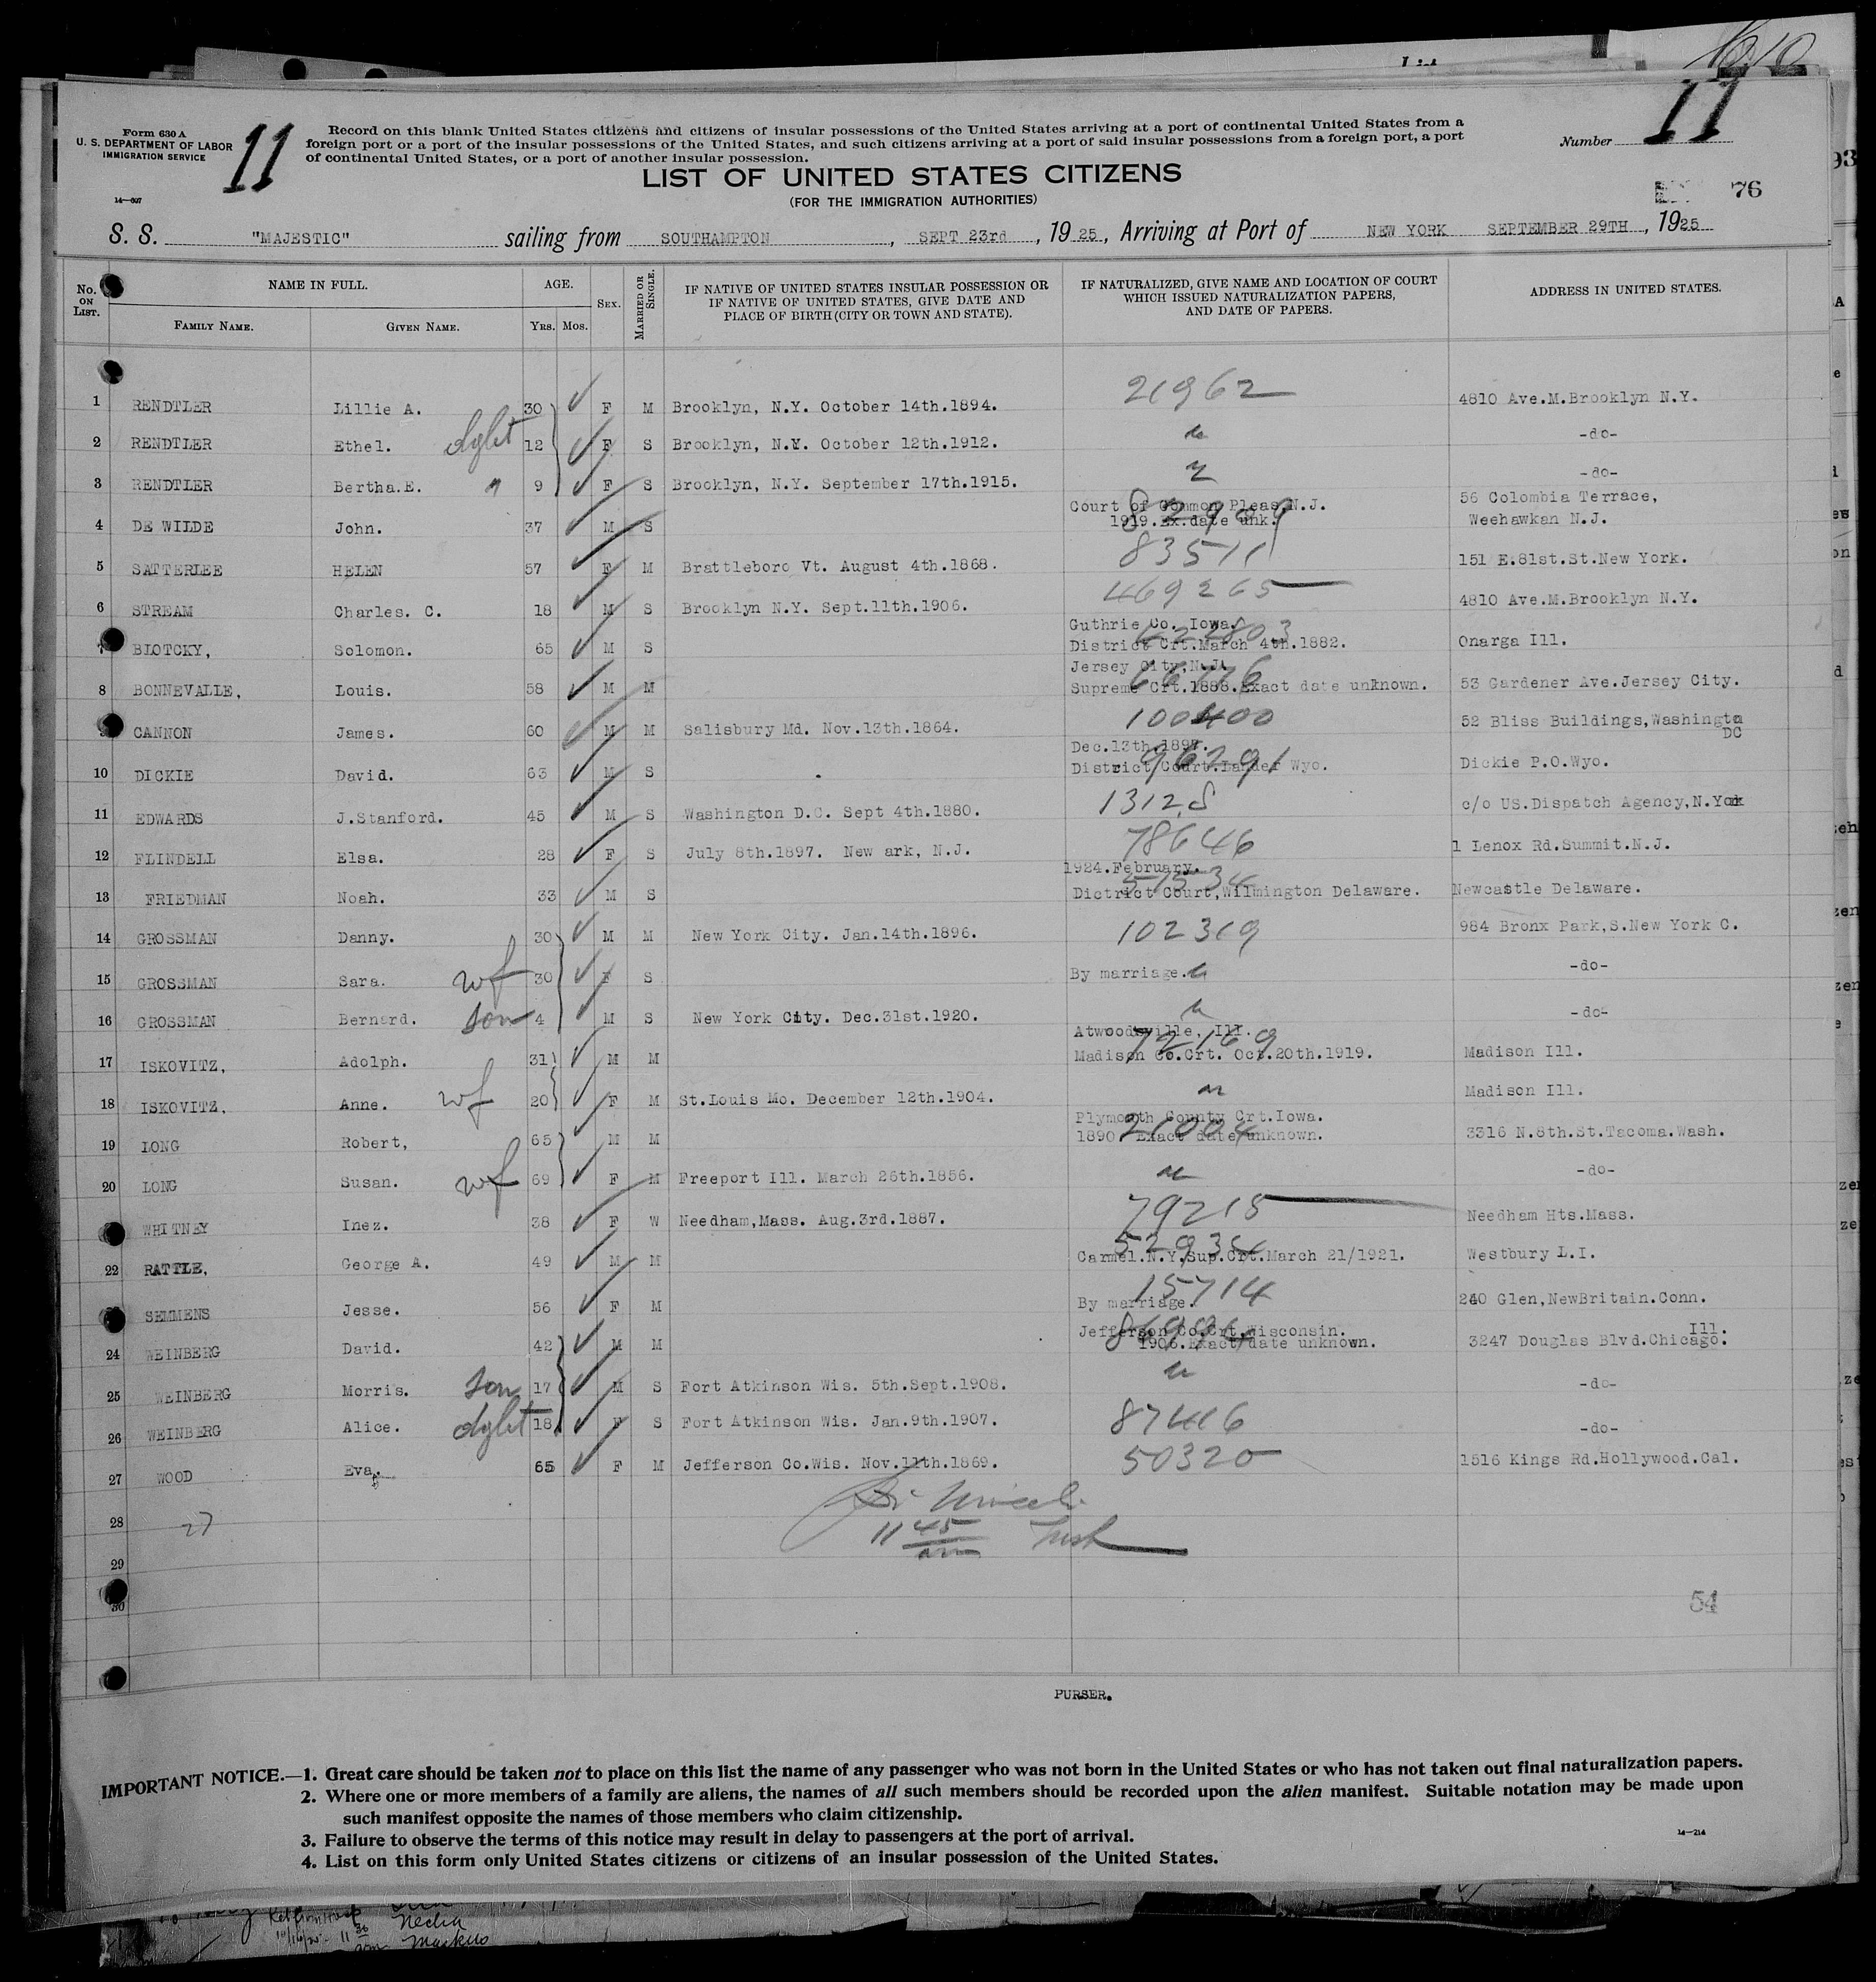 1010
11
Form 630 A
U. S. DEPARTMENT OF LABOR
IMMIGRATION SERVICE
14—607
11
Record on this blank United States citizens and citizens of insular possessions of the United States arriving at a port of continental United States from a
foreign port or a port of the insular possessions of the United States, and such citizens arriving at a port of said insular possessions from a foreign port, a port
of continental United States, or a port of another insular possession.
Number
LIST OF UNITED STATES CITIZENS
(FOR THE IMMIGRATION AUTHORITIES)
76
S. S. "MAJESTIC" sailing from SOUTHAMPTON, SEPT 23rd, 1925, Arriving at Port of NEW YORK SEPTEMBER 29TH, 1925
No. ON LIST. NAME IN FULL. FAMILY NAME. GIVEN NAME. AGE. YRS. MOS. SEX. MARRIED OR SINGLE. IF NATIVE OF UNITED STATES INSULAR POSSESSION OR IF NATIVE OF UNITED STATES, GIVE DATE AND PLACE OF BIRTH (CITY OR TOWN AND STATE). IF NATURALIZED, GIVE NAME AND LOCATION OF COURT WHICH ISSUED NATURALIZATION PAPERS, AND DATE OF PAPERS. ADDRESS IN UNITED STATES.
1 RENDTLER Lillie A. 30 F M Brooklyn, N.Y. October 14th.1894. 21962 4810 Ave.M.Brooklyn N.Y.
2 RENDTLER Ethel. dght 12 F S Brooklyn, N.Y. October 12th.1912. -do-
3 RENDTLER Bertha.E. " 9 F S Brooklyn, N.Y. September 17th.1915. -do-
4 DE WILDE John. 37 M S Court of Common Pleas,N.J. 1919.Ex.date unk. 56 Colombia Terrace, Weehawkan N.J.
5 SATTERLEE HELEN 57 F M Brattleboro Vt. August 4th.1868. 83511 151 E.81st.St.New York.
6 STREAM Charles. C. 18 M S Brooklyn N.Y. Sept.11th.1906. 469265 4810 Ave.M.Brooklyn N.Y.
7 BLOTCKY, Solomon. 65 M S Guthrie Co. Iowa. District Crt.March 4th.1882. Onarga Ill.
8 BONNEVALLE, Louis. 58 M M Jersey City,N.J. Supreme Crt.1888.Exact date unknown. 53 Gardener Ave.Jersey City.
9 CANNON James. 60 M M Salisbury Md. Nov.13th.1864. 100400 52 Bliss Buildings,Washington DC
10 DICKIE David. 63 M S Dec.13th.1897. District Court.Lander Wyo. 96291 Dickie P.O.Wyo.
11 EDWARDS J.Stanford. 45 M S Washington D.C. Sept 4th.1880. 13128 c/o US.Dispatch Agency,N.York
12 FLINDELL Elsa. 28 F S July 8th.1897. New ark, N.J. 78646 1 Lenox Rd.Summit.N.J.
13 FRIEDMAN Noah. 33 M S 1924.February. District Court,Wilmington Delaware. Newcastle Delaware.
14 GROSSMAN Danny. 30 M M New York City. Jan.14th.1896. 102319 984 Bronx Park,S.New York C.
15 GROSSMAN Sara. wf 30 F S By marriage. -do-
16 GROSSMAN Bernard. son 4 M S New York City. Dec.31st.1920. -do-
17 ISKOVITZ, Adolph. 31 M M Atwoodsville, Ill. Madison Co.Crt. Oct.20th.1919. 72169 Madison Ill.
18 ISKOVITZ, Anne. wf 20 F M St.Louis Mo. December 12th.1904. Madison Ill.
19 LONG Robert, 65 M M Plymouth County Crt.Iowa. 1890 Exact date unknown. 21004 3316 N.8th.St.Tacoma.Wash.
20 LONG Susan. wf 69 F M Freeport Ill. March 26th.1856. -do-
WHITNEY Inez. 38 F W Needham,Mass. Aug.3rd.1887. 79215 Needham Hts.Mass.
22 RATTLE, George A. 49 M M Carmel.N.Y,Sup.Crt.March 21/1921. Westbury L.I.
SEMMENS Jesse. 56 F M By marriage. 15714 240 Glen,NewBritain.Conn.
24 WEINBERG David. 42 M M Jefferson Co.Crt.Wisconsin. 1906.Exact date unknown. 3247 Douglas Blvd.Chicago. Ill.
25 WEINBERG Morris. son 17 M S Fort Atkinson Wis. 5th.Sept.1908. -do-
26 WEINBERG Alice. dght 18 F S Fort Atkinson Wis. Jan.9th.1907. 87416 -do-
27 WOOD Eva. 65 F M Jefferson Co.Wis. Nov.11th.1869. 50320 1516 Kings Rd.Hollywood.Cal.
28 27
11 45 am
29
30
54
PURSER.
IMPORTANT NOTICE.—1. Great care should be taken not to place on this list the name of any passenger who was not born in the United States or who has not taken out final naturalization papers.
2. Where one or more members of a family are aliens, the names of all such members should be recorded upon the alien manifest. Suitable notation may be made upon
such manifest opposite the names of those members who claim citizenship.
3. Failure to observe the terms of this notice may result in delay to passengers at the port of arrival.
4. List on this form only United States citizens or citizens of an insular possession of the United States.
14—214